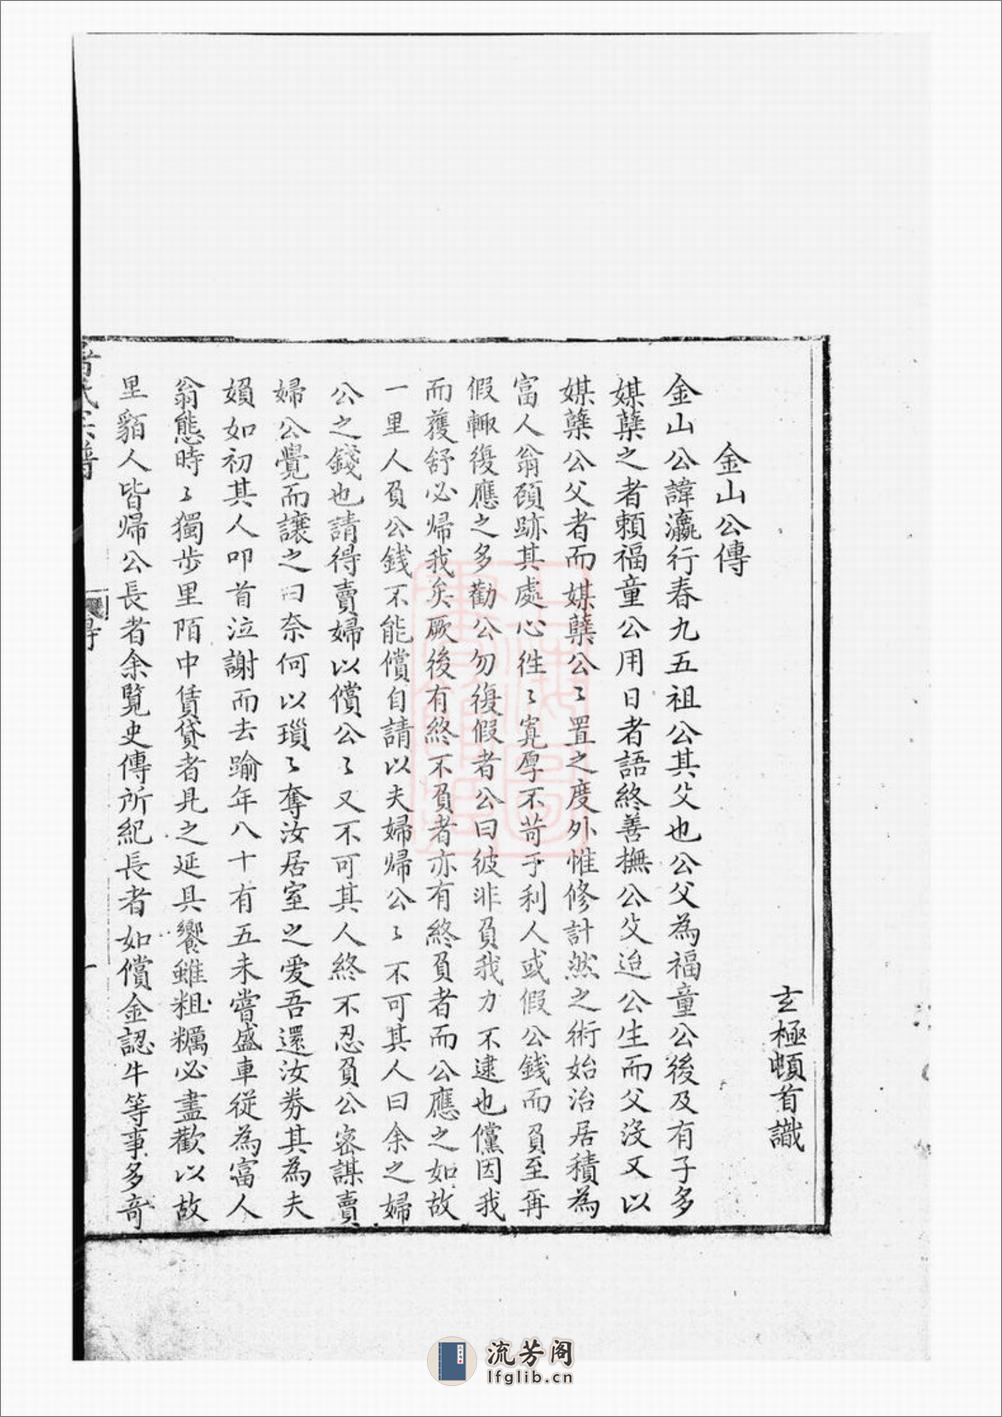 玄極頓首識
金山公傳
金山公諱瀛行春九五祖公其父也公父為福童公後及有子多
媒糵之者賴福童公用日者語終善撫公父迨公生而父沒又以
媒糵公父者而媒糵公〻置之度外惟修計然之術始治居積為
富人翁頎跡其處心徃〻寬厚不苛于利人或假公錢而負至再
假輙復應之多勸公勿復假者公曰彼非負我力不逮也儻因我
而獲舒必歸我矣厥後有終不負者亦有終負者而公應之如故
一里人負公錢不能償自請以夫婦歸公〻不可其人曰余之婦
公之錢也請得賣婦以償公〻又不可其人終不忍負公密謀賣
婦公覺而讓之曰奈何以瑣〻奪汝居室之愛吾還汝券其為夫
婦如初其人叩首泣謝而去踰年八十有五未嘗盛車從為富人
翁態時〻獨步里陌中賃貸者見之延具饗雖粗糲必盡歡以故
里貊人皆歸公長者余覧史傳所紀長者如償金認牛等事多奇
氏宗譜